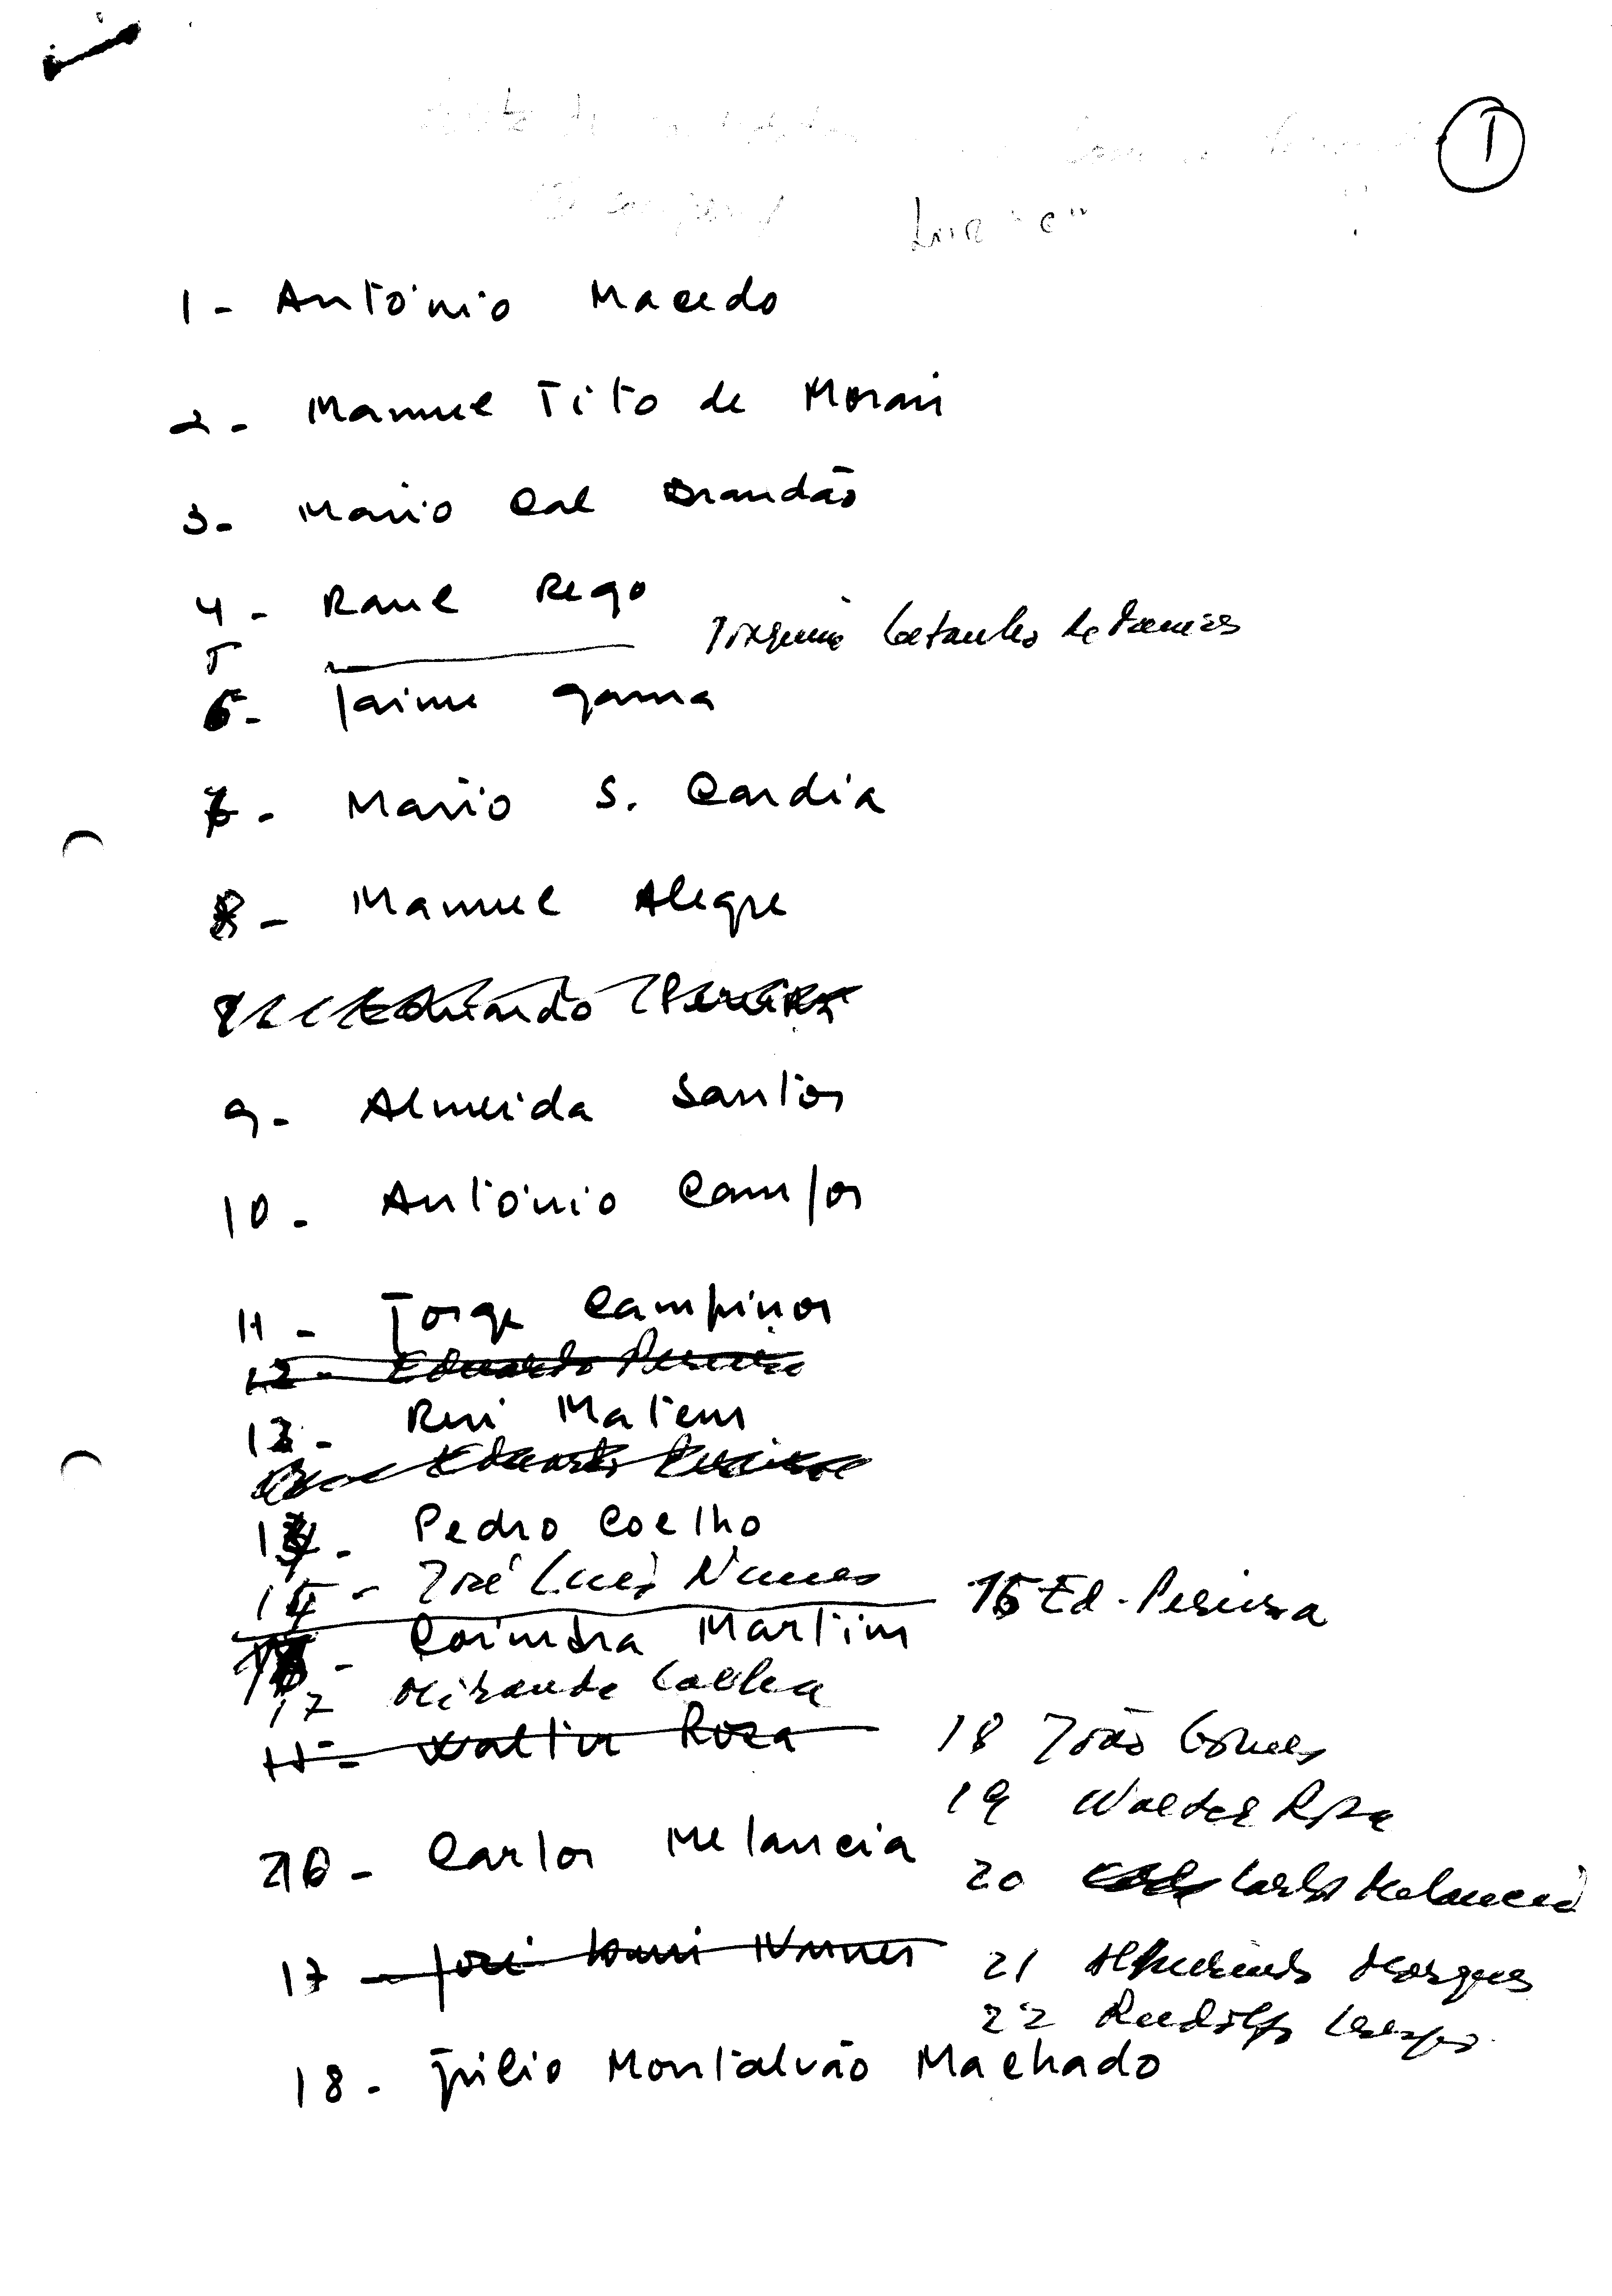 1
Lista "C"
1 - António Macedo
2 - Manuel Tito de Morais
3 - Mario Cal Brandão
4 - Raul Rego
5 Joaquim Catanho de Menezes
6 - Jaime Gama
7 - Mario S. Cardia
8 - Manuel Alegre
Eduardo Pereira
9 - Almeida Santos
10 - António Campos
11 - Jorge Campinos
12 - Eduardo Pereira
13 - Rui Mateus
Eduardo Pereira
14 - Pedro Coelho
15 - José Luís Nunes
16 Ed. Pereira
Coimbra Martins
17 Miranda Calha
15 - Walter Rosa
18 João Gomes
19 Walter Rosa
20 - Carlos Melancia
20 Carlos Melancia
17 - José Luis Nunes
21 Marques
22 Rudolfo Crespo
18 - Júlio Montalvão Machado